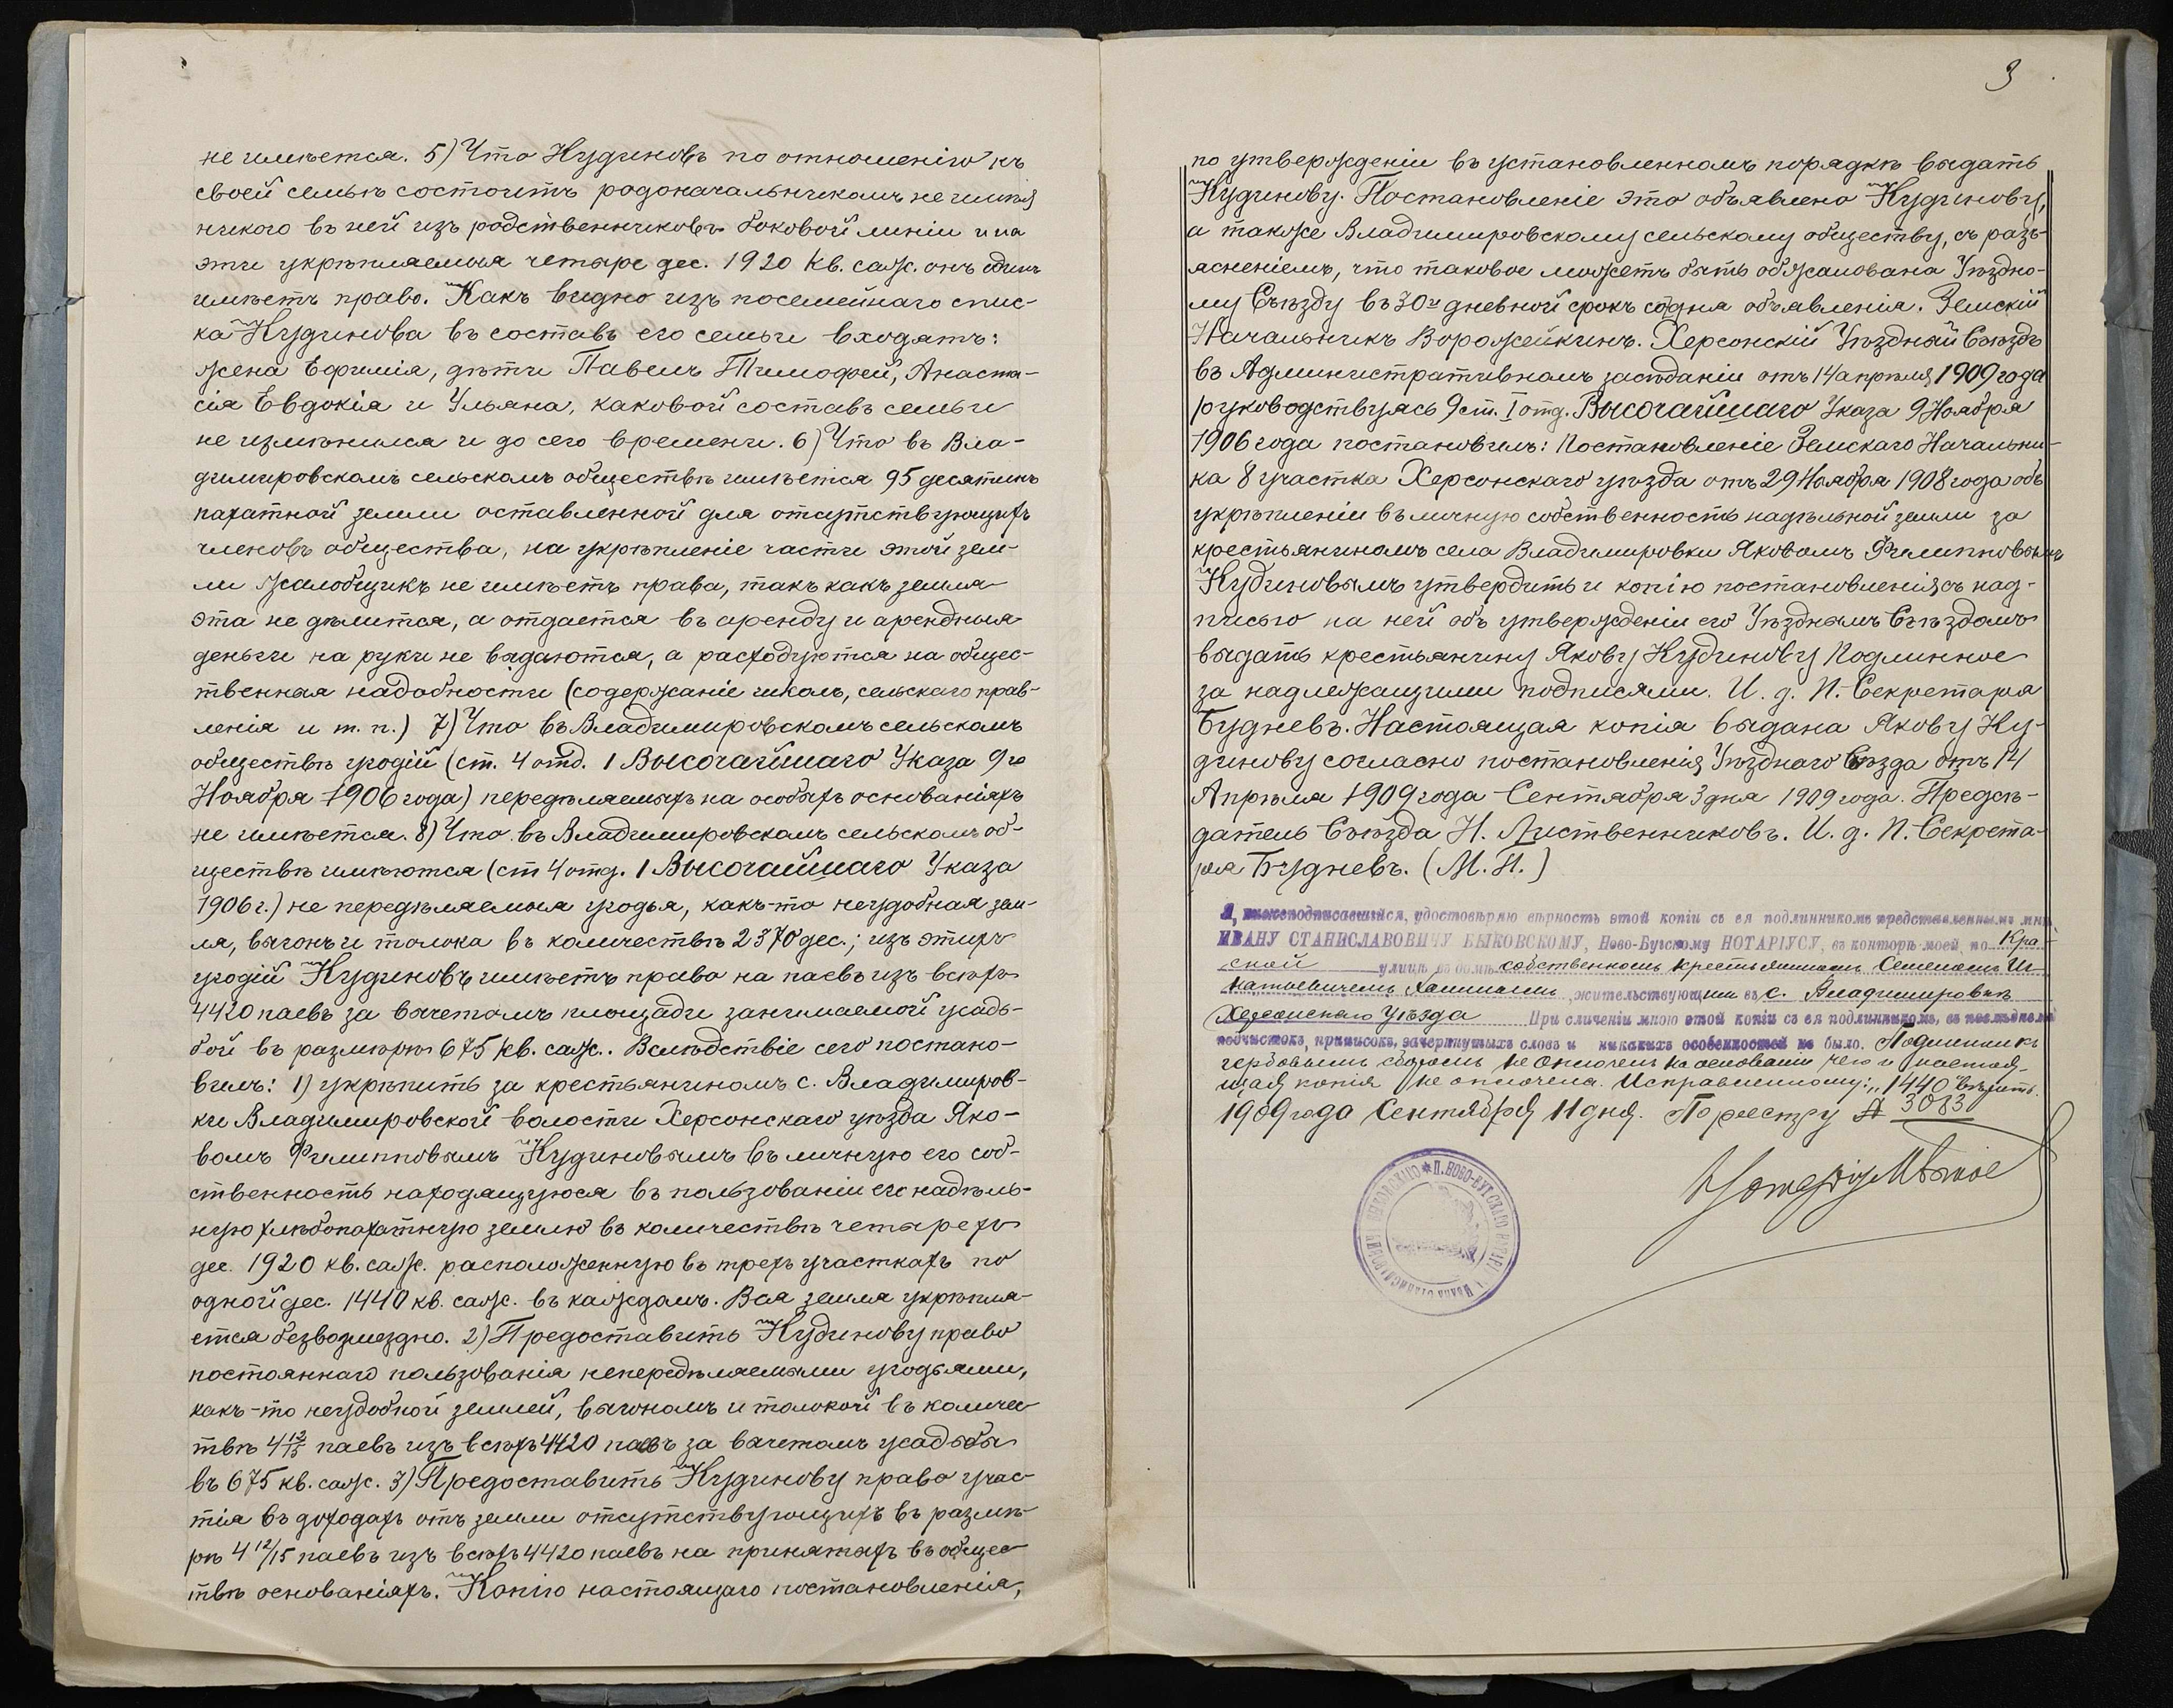 не имѣется. 5) Что Кудиновъ по отношенію къ
своей семьѣ состоитъ родоначальникомъ не имѣя
никого въ ней изъ родственниковъ боковой линіи и на
эти укрѣпляемыя четыре дес. 1920 кв. саж. онъ одинъ
имѣетъ право. Какъ видно изъ посемейнаго спис-
ка Кудинова въ составъ его семьи входятъ:
жена Ефимія, дѣти Павелъ Тимофей, Анаста-
сія Евдокія и Ульяна, каковой составъ семьи
не измѣнился и до сего времени. 6) Что въ Вла-
димировскомъ сельскомъ обществѣ имѣется 95 десятинъ
пахатной земли оставленной для отсутствующихъ
членовъ общества, на укрѣпленіе части этой зем-
ли жалобщикъ не имѣетъ права, такъ какъ земля
эта не дѣлится, а отдается въ аренду и арендныя
деньги на руки не выдаются, а расходуются на общес-
твенныя надобности (содержаніе школъ, сельскаго прав-
ленія и т. п.) 7) Что въ Владимировскомъ сельскомъ
обществѣ угодій (ст. 4 отд. 1 Высочайшаго Указа 9го
Ноября 1906 года) передѣляемыхъ на особыхъ основаніяхъ
не имѣется. 8) Что въ Владимировскомъ сельскомъ об-
ществѣ имѣются (ст 4 отд. 1 Высочайшаго Указа
1906 г.) не передѣляемыя угодья, какъ-то неудобная зем-
ля, выгонъ и толока въ количествѣ 2370 дес.; изъ этихъ
угодій Кудиновъ имѣетъ право на паевъ изъ всѣхъ
4420 паевъ за вычетомъ площади занимаемой усадь-
бой въ размѣрѣ 675 кв. саж.. Вслѣдствіе сего постано-
вилъ: 1) укрѣпить за крестьяниномъ с. Владимиров-
ки Владимировской волости Херсонскаго уѣзда Яко-
вомъ Филипповымъ Кудиновымъ въ личную его соб-
ственность находящуюся въ пользованіи его надѣль-
ную хлѣбопахатную землю въ количествѣ четырехъ
дес. 1920 кв. саж. расположенную въ трехъ участкахъ по
одной дес. 1440 кв. саж. въ каждомъ. Вся земля укрѣпля-
ется безвозмездно. 2) Предоставить Кудинову право
постояннаго пользованія непередѣляемыми угодьями,
какъ-то неудобной землей, выгономъ и толокой въ количес
твѣ 4 12/15 паевъ изъ всѣхъ 4420 паевъ за вычетомъ усадьбы
въ 675 кв. саж. 3) Предоставить Кудинову право учас-
тія въ доходахъ отъ земли отсутствующихъ въ размѣ-
рѣ 4 12/15 паевъ изъ всѣхъ 4420 паевъ на принятыхъ въ общес
твѣ основаніяхъ. Копію настоящаго постановленія,
3
по утвержденіи въ установленномъ порядкѣ выдать
Кудинову. Постановленіе это объявлено Кудинову,
а также Владимировскому сельскому обществу, съ разъ-
ясненіемъ, что таковое можетъ быть обжаловано Уѣздно-
му Съѣзду въ 30и дневной срокъ со дня объявленія. Земскій
Начальникъ Ворожейкинъ. Херсонскій Уѣздный Съѣздъ
въ Административномъ засѣданіи отъ 14 апрѣля 1909 года
руководствуясь 9 ст. I отд. Высочайшаго Указа 9 Ноября
1906 года постановилъ: Постановленіе Земскаго Начальни-
ка 8 участка Херсонскаго уѣзда отъ 29 Ноября 1908 года объ
укрѣпленіи въ личную собственность надѣльной земли за
крестьяниномъ села Владимировки Яковомъ Филипповымъ
Кудиновымъ утвердить и копію постановленія съ над-
писью на ней объ утвержденіи его Уѣзднымъ Съѣздомъ
выдать крестьянину Якову Кудинову Подлинное
за надлежащими подписями. И. д. П. Секретаря
Будневъ. Настоящая копія выдана Якову Ку-
динову согласно постановленія Уѣзднаго Съѣзда отъ 14
Апрѣля 1909 года Сентября 3 дня 1909 года. Предсѣ-
датель Съѣзда Н. Лиственниковъ. И. д. П. Секрета-
ря Будневъ. (М. П.)
Я, нижеподписавшійся, удостовѣряю вѣрность этой копіи съ ея подлинникомъ представленнымъ мнѣ
ИВАНУ СТАНИСЛАВОВИЧУ БЫКОВСКОМУ, Ново-Бугскому НОТАРІУСУ, въ конторѣ моей, по Кра-
ской улицѣ въ домѣ собственномъ крестьяниномъ Семеномъ Иг-
натьевичемъ жительствующимъ въ с. Владимировкѣ
Херсонскаго уѣзда При сличеніи мною этой копіи съ ея подлинникомъ, въ послѣднемъ
подчистокъ, приписокъ, зачеркнутыхъ словъ и никакихъ особенностей не было. Подлинникъ
гербовымъ сборомъ не оплоченъ на основаніи чего и настоя-
щая копія не оплочена. Исправленному: „1440" вѣрить.
1909 года Сентября 11 дня. По реестру № 3083
Нотаріусъ